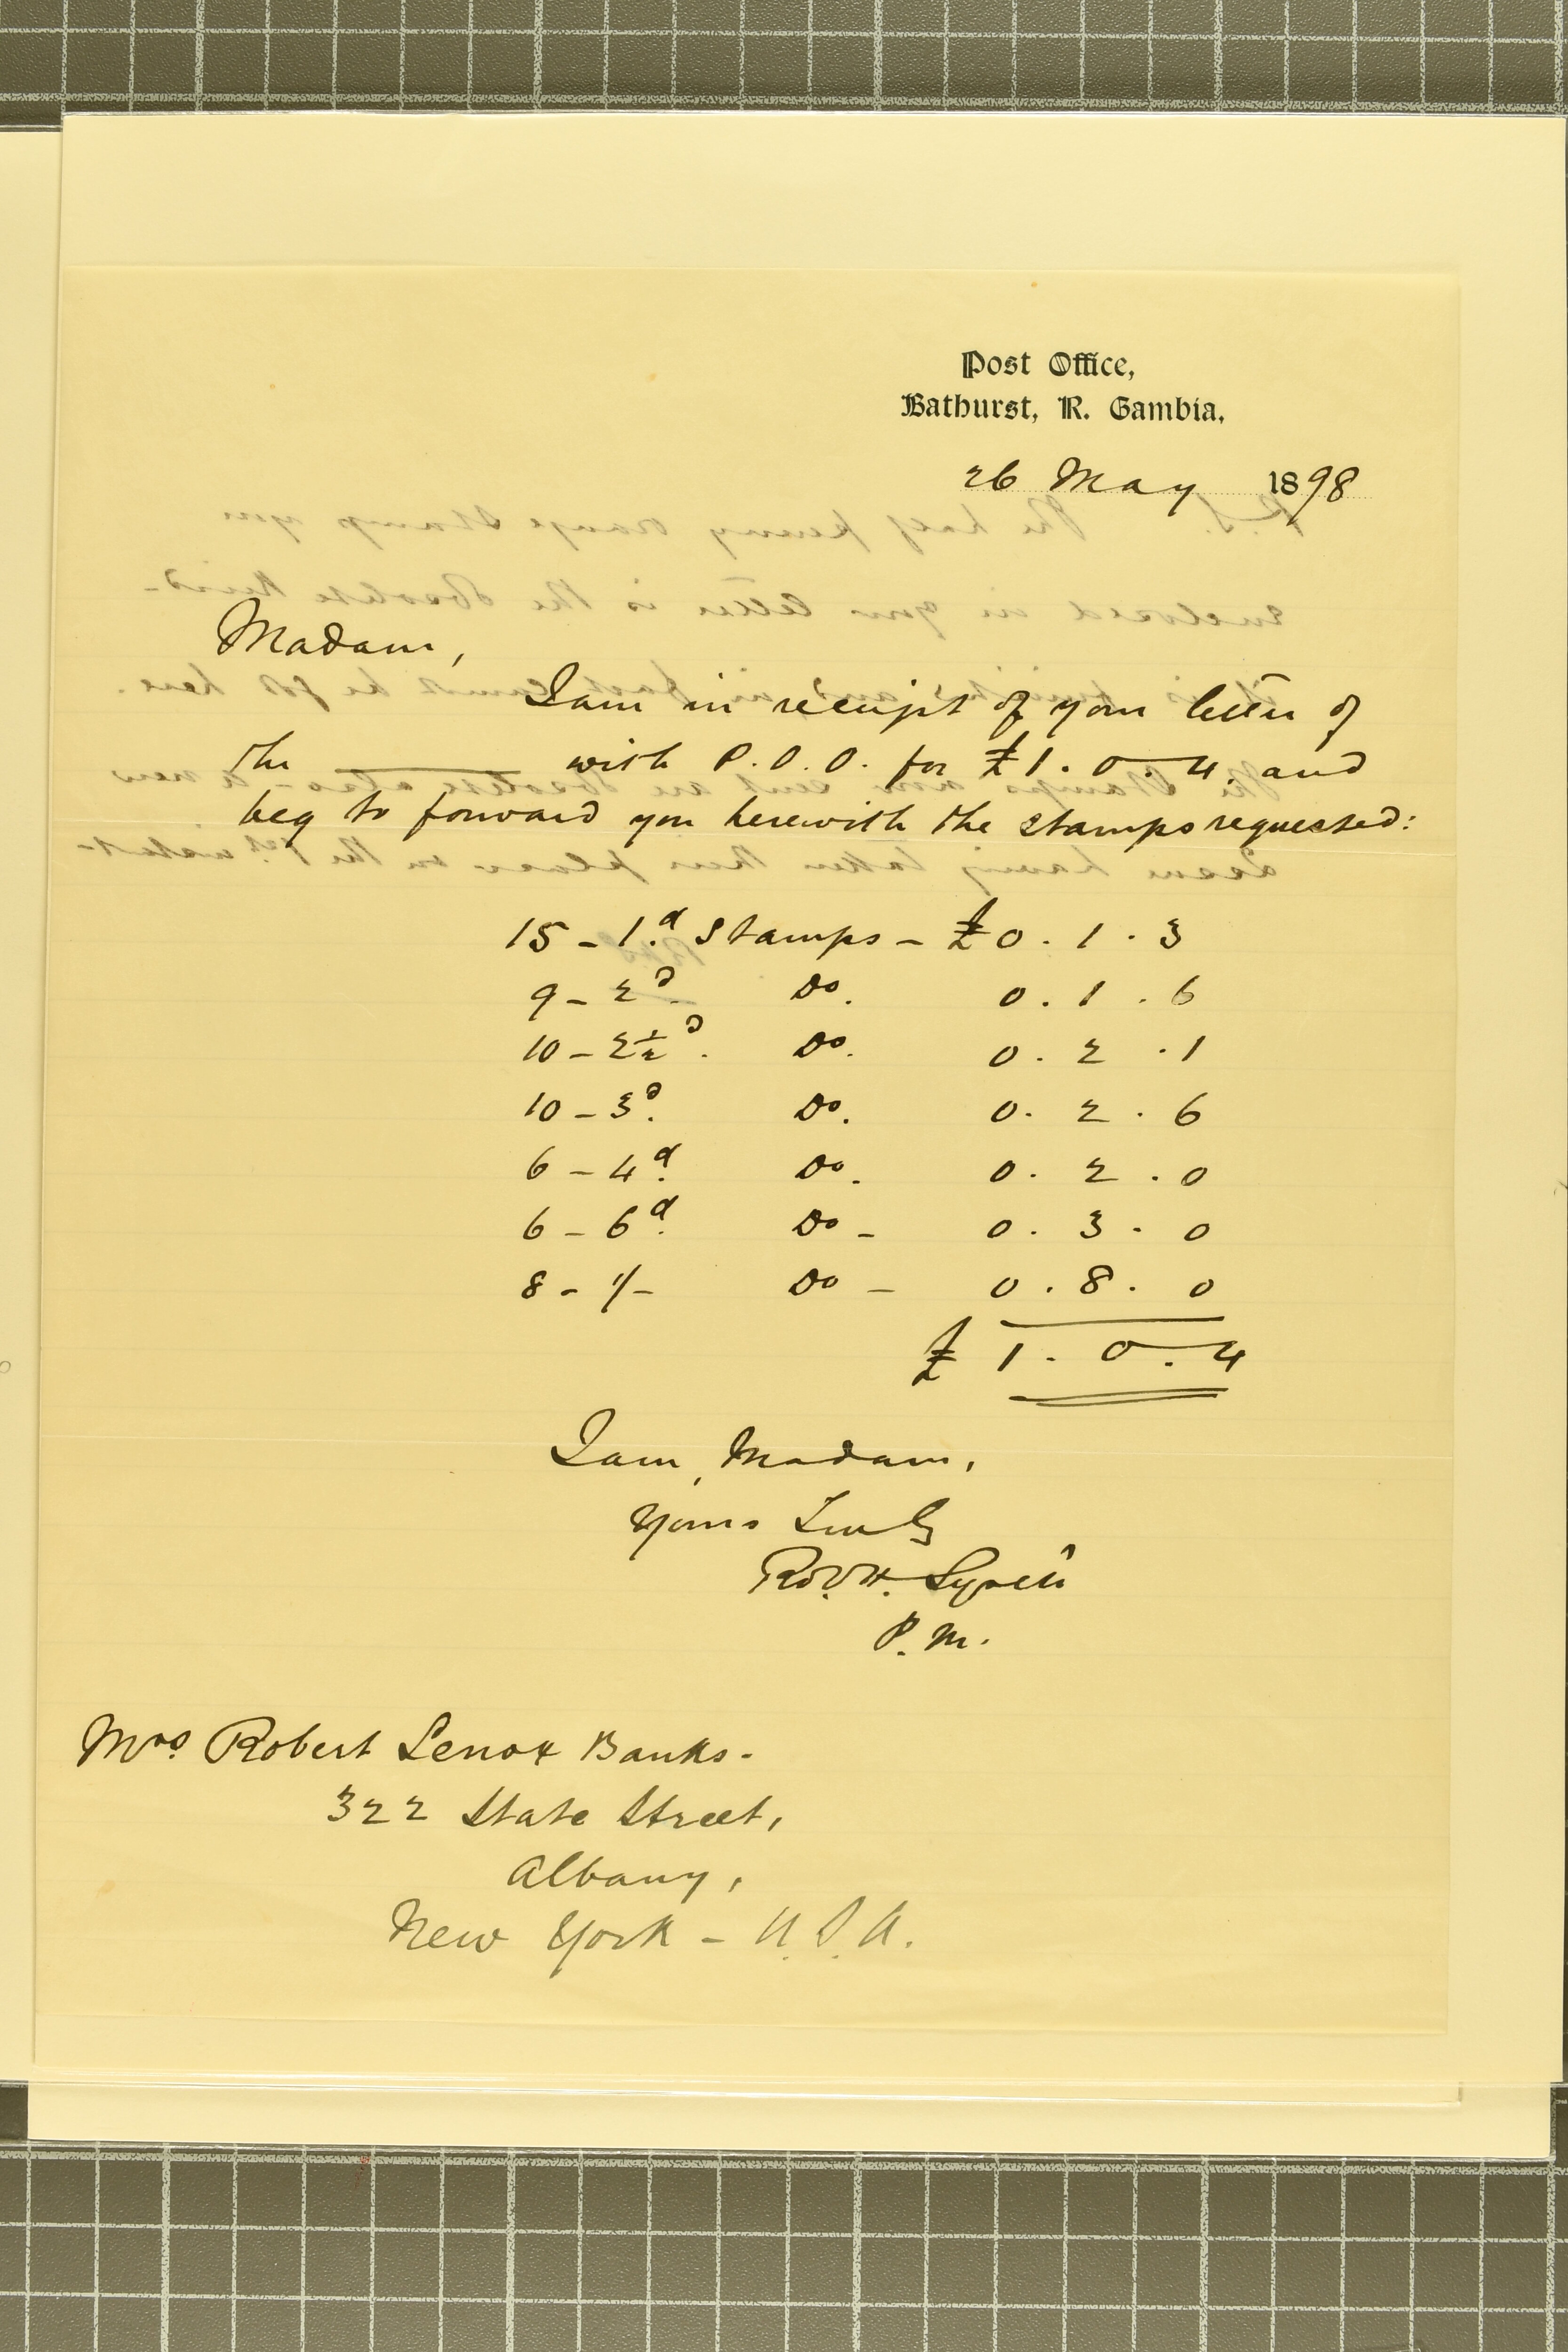 Post Office,
Bathurst, R. Gambia,
26 May 1898
Madam,
I am in receipt of your letter of
the ______ with P.O.O. for £1.0.4. and
beg to forward you herewith the stamps requested:
15 - 1d. Stamps - £0.1.3
9 - 2d. Do. 0.1.6
10 - 2½d. Do. 0.2.1
10 - 3d. Do. 0.2.6
6 - 4d. Do. 0.2.0
6 - 6d. Do - 0.3.0
8 - 1/- Do - 0.8.0
£1.0.4
I am, Madam,
Yours Truly
P.M.
Mrs Robert Lenox Banks.
322 State Street,
Albany,
New York - U.S.A.
P.S. The half penny orange stamp you
enclosed in your letter is the obsolete kind-